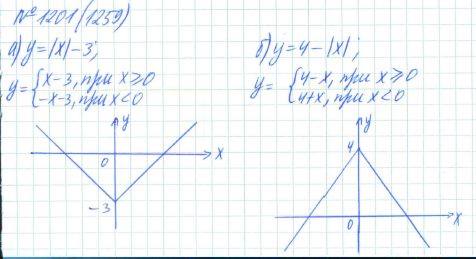 № 1201 (1259)
а) y = |x| - 3;
y = { x-3, при x ≥ 0
-x-3, при x < 0
y
0
x
-3
б) y = 4 - |x|;
y = { 4-x, при x ≥ 0
4+x, при x < 0
y
4
0
x